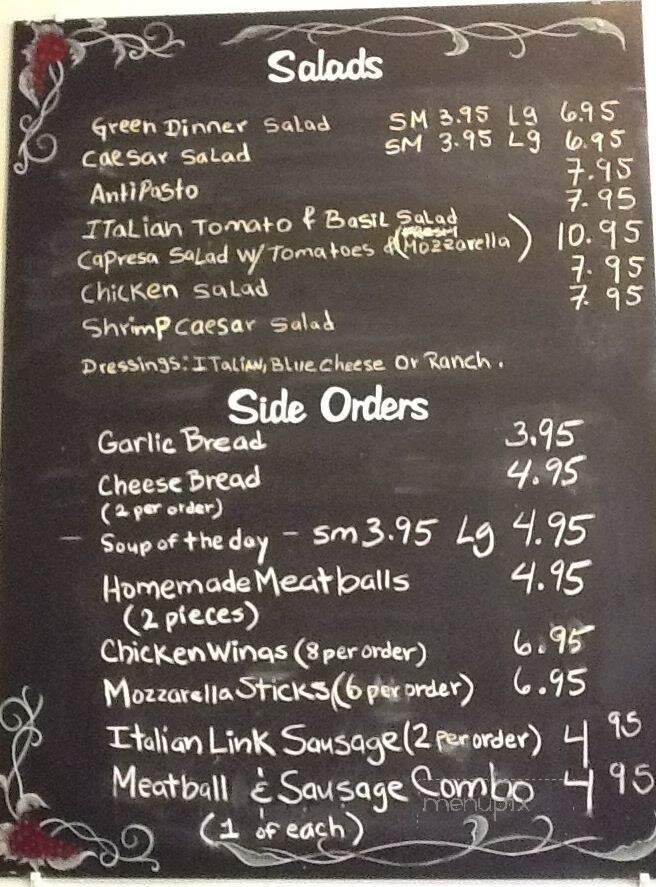 Salads
Green Dinner Salad SM 3.95 Lg 6.95
Caesar Salad SM 3.95 Lg 6.95
AntiPasto 7.95
ITalian Tomato & Basil Salad 7.95
Capresa Salad w/ Tomatoes & (FRESH Mozzarella) 10.95
Chicken Salad 7.95
Shrimp Caesar Salad 7.95
Dressings: ITalian, Blue Cheese Or Ranch.
Side Orders
Garlic Bread 3.95
Cheese Bread 4.95
(2 per order)
- Soup of the day - sm 3.95 Lg 4.95
Homemade Meatballs 4.95
(2 pieces)
Chicken Wings (8 per order) 6.95
Mozzarella Sticks (6 per order) 6.95
Italian Link Sausage (2 per order) 4 95
Meatball & Sausage Combo 4 95
(1 of each)
menupix